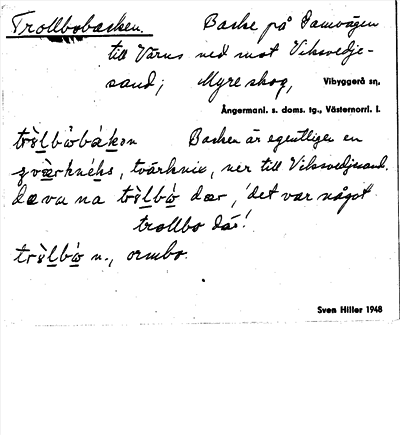 Trollbobacken. Backe på Tamvägen
till Värns ned mot Viksvedje-
sand; Myre skog, Vibyggerå sn,
Ångermanl. s. doms. tg., Västernorrl. l.
Backen är egentligen en
tvärknix, ner till Viksvedjesand.
'det var något
trollbo där'
n., ormbo.
Sven Hiller 1948